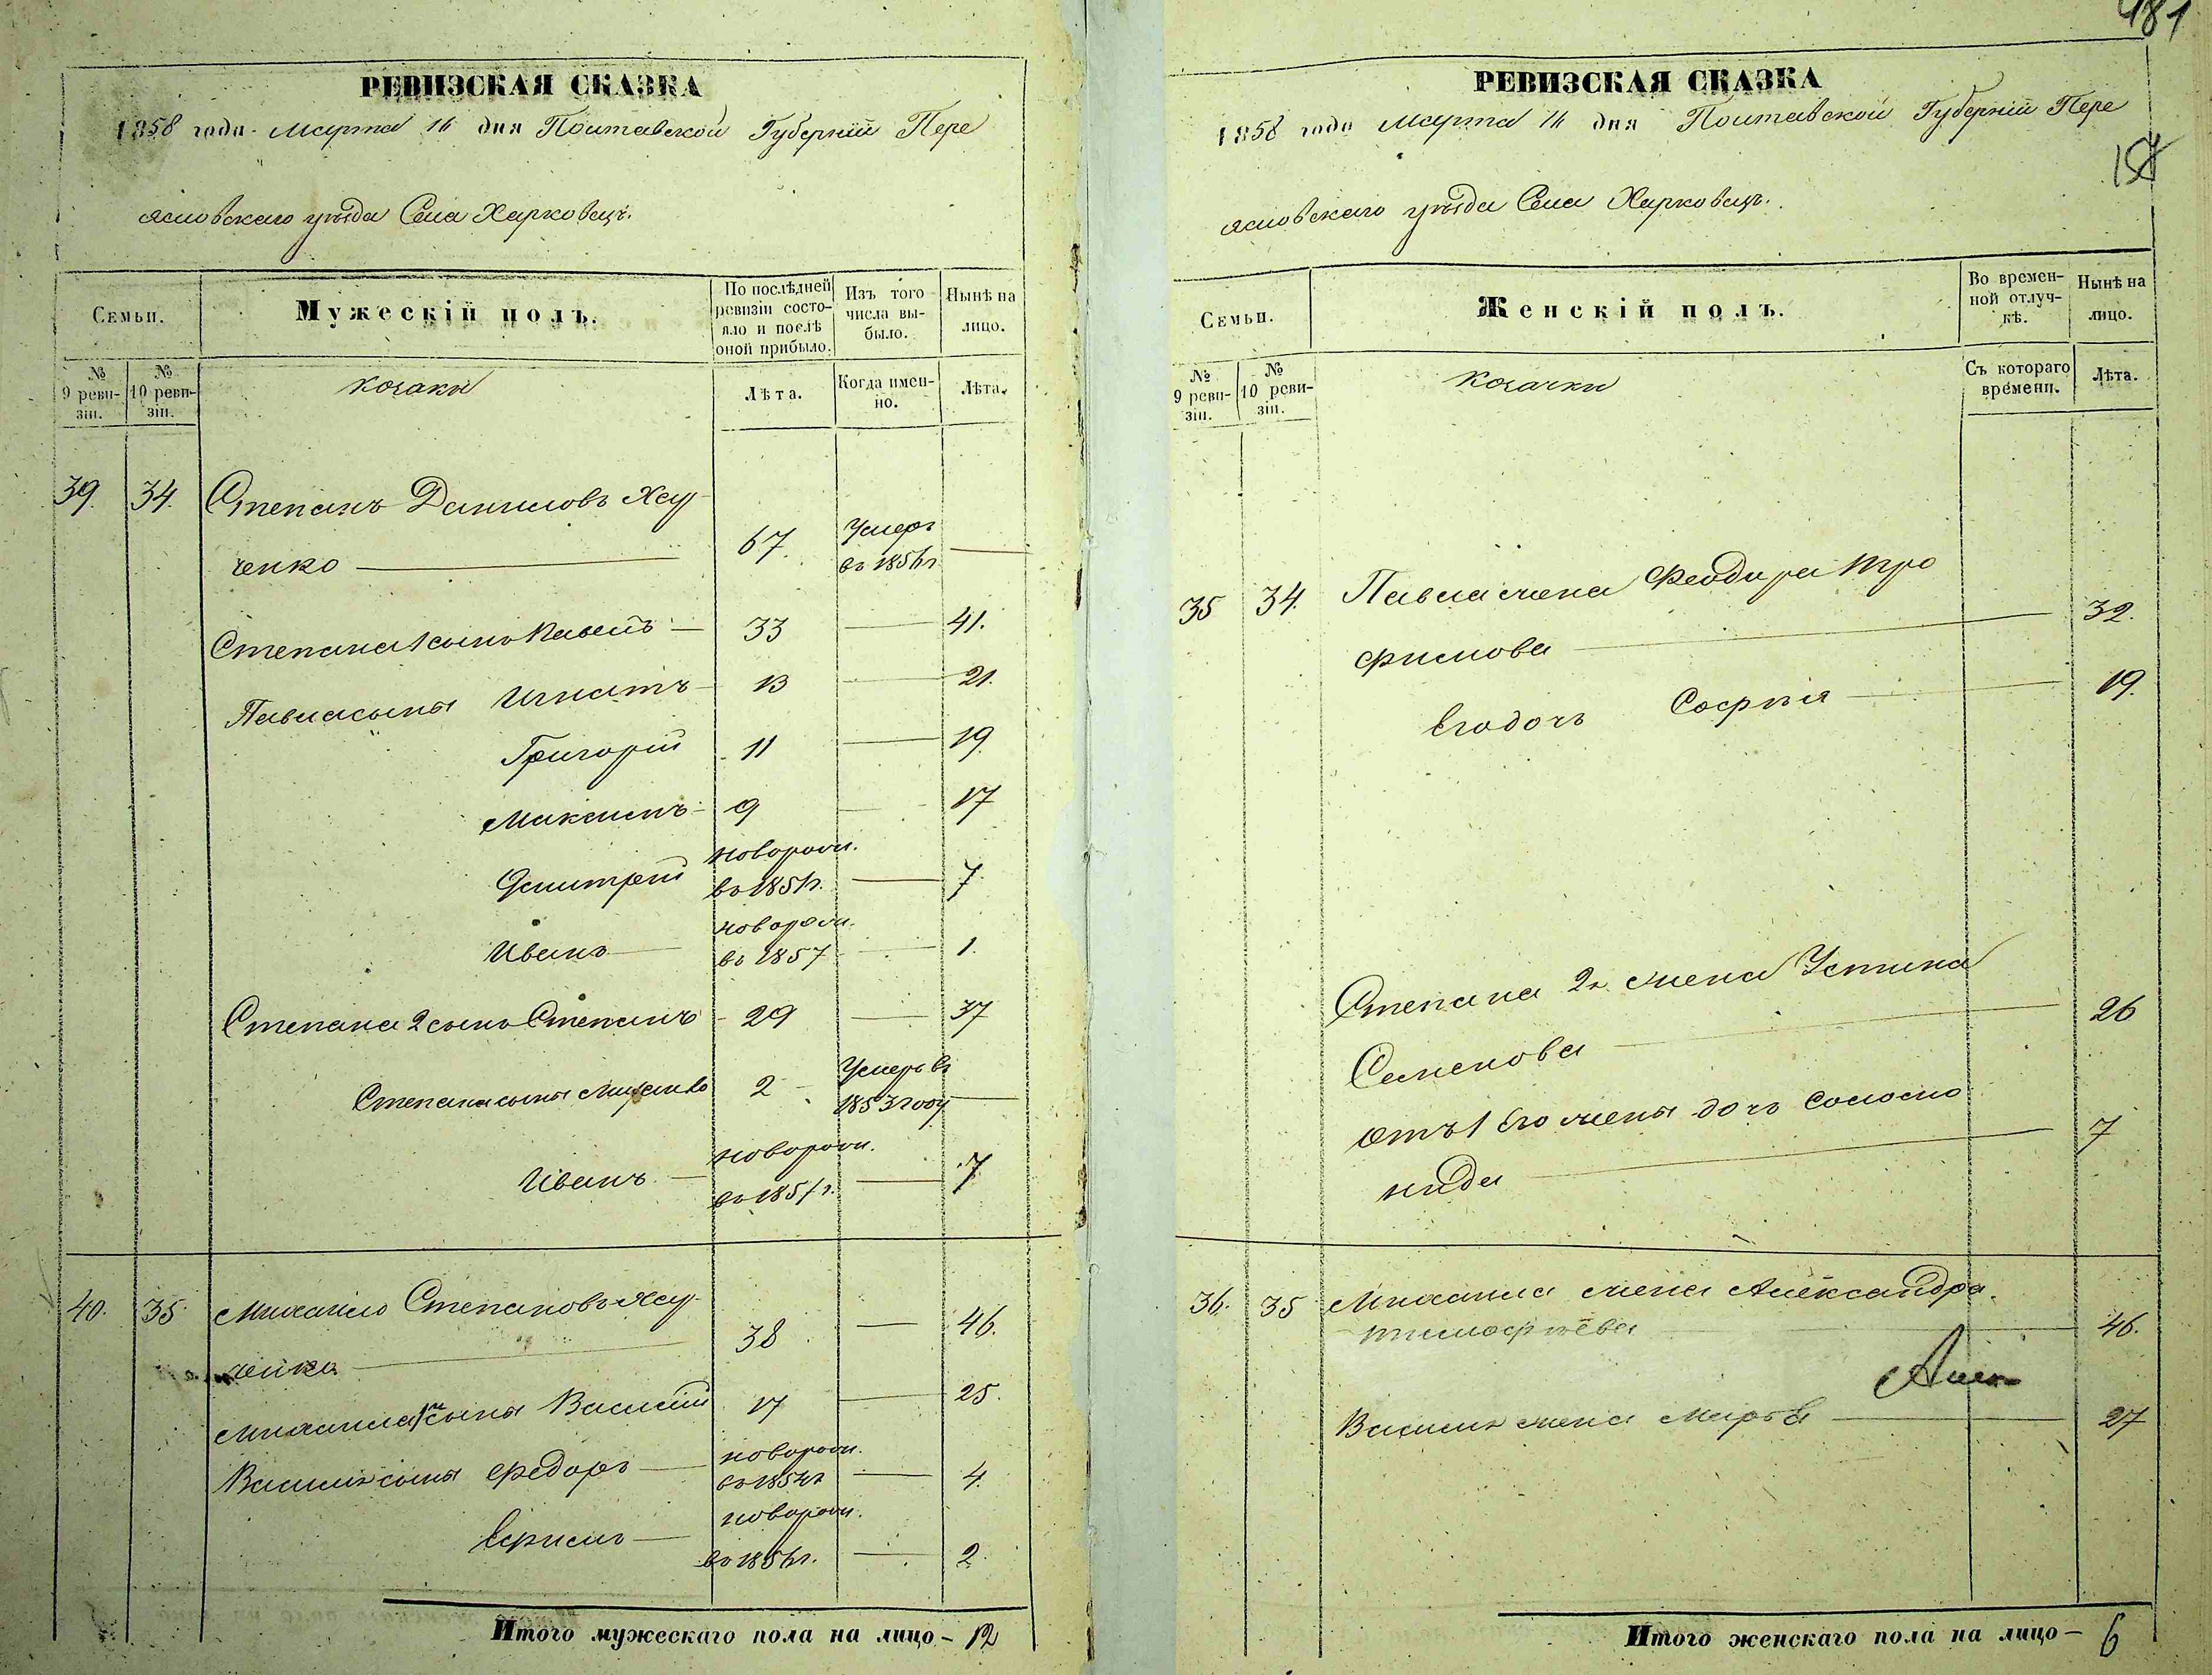 РЕВИЗСКАЯ СКАЗКА
1858 года Марта 16 дня Полтавской Губерніи Пере
яславскаго уѣзда Села Харковецъ.
Семьи.
Мужескій полъ.
По послѣдней ревизіи состояло и послѣ оной прибыло.
Изъ того числа выбыло.
Нынѣ на лицо.
№ 9 ревизіи.
№ 10 ревизіи.
козаки
Лѣта.
Когда именно.
Лѣта.
39. 34. Степанъ Даниловъ Хау
ченко 67. Умеръ въ 1856г
Степана 1 сынъ Павелъ 33 41.
Павла сыны Игнатъ 13 21.
Григорій 11 19.
Максимъ 9 17
Дмитрій новорожд. въ 1851г. 7.
Иванъ новорожд. въ 1857 1.
Степана 2 сынъ Степанъ 29 37
Степана сыны Михайло 2 Умеръ въ 1853 году
Иванъ новорожд. въ 1851г. 7
40. 35. Михайло Степановъ Хау
ченко 38 46.
Михаила сынъ Василій 17 25.
Василія сыны Федоръ новорожд. въ 1854г 4.
Ефимъ новорожд. въ 1856г. 2.
Итого мужескаго пола на лицо – 12
481
РЕВИЗСКАЯ СКАЗКА
1858 года Марта 16 дня Полтавской Губерніи Пере
яславскаго уѣзда Села Харковецъ.
Семьи.
Женскій полъ.
Во временной отлучкѣ.
Нынѣ на лицо.
№ 9 ревизіи.
№ 10 ревизіи.
козачки
Съ котораго времени.
Лѣта.
35 34. Павла жена Феодора Тро
фимова 32.
Его дочь Софія 19.
Степана 2я жена Устина
Семенова 26
Отъ 1 Его жены дочь Соломо
нида 7
36. 35 Михаила жена Александра
Тимофѣева 46.
Василія жена Марѳа 27
Итого женскаго пола на лицо – 6